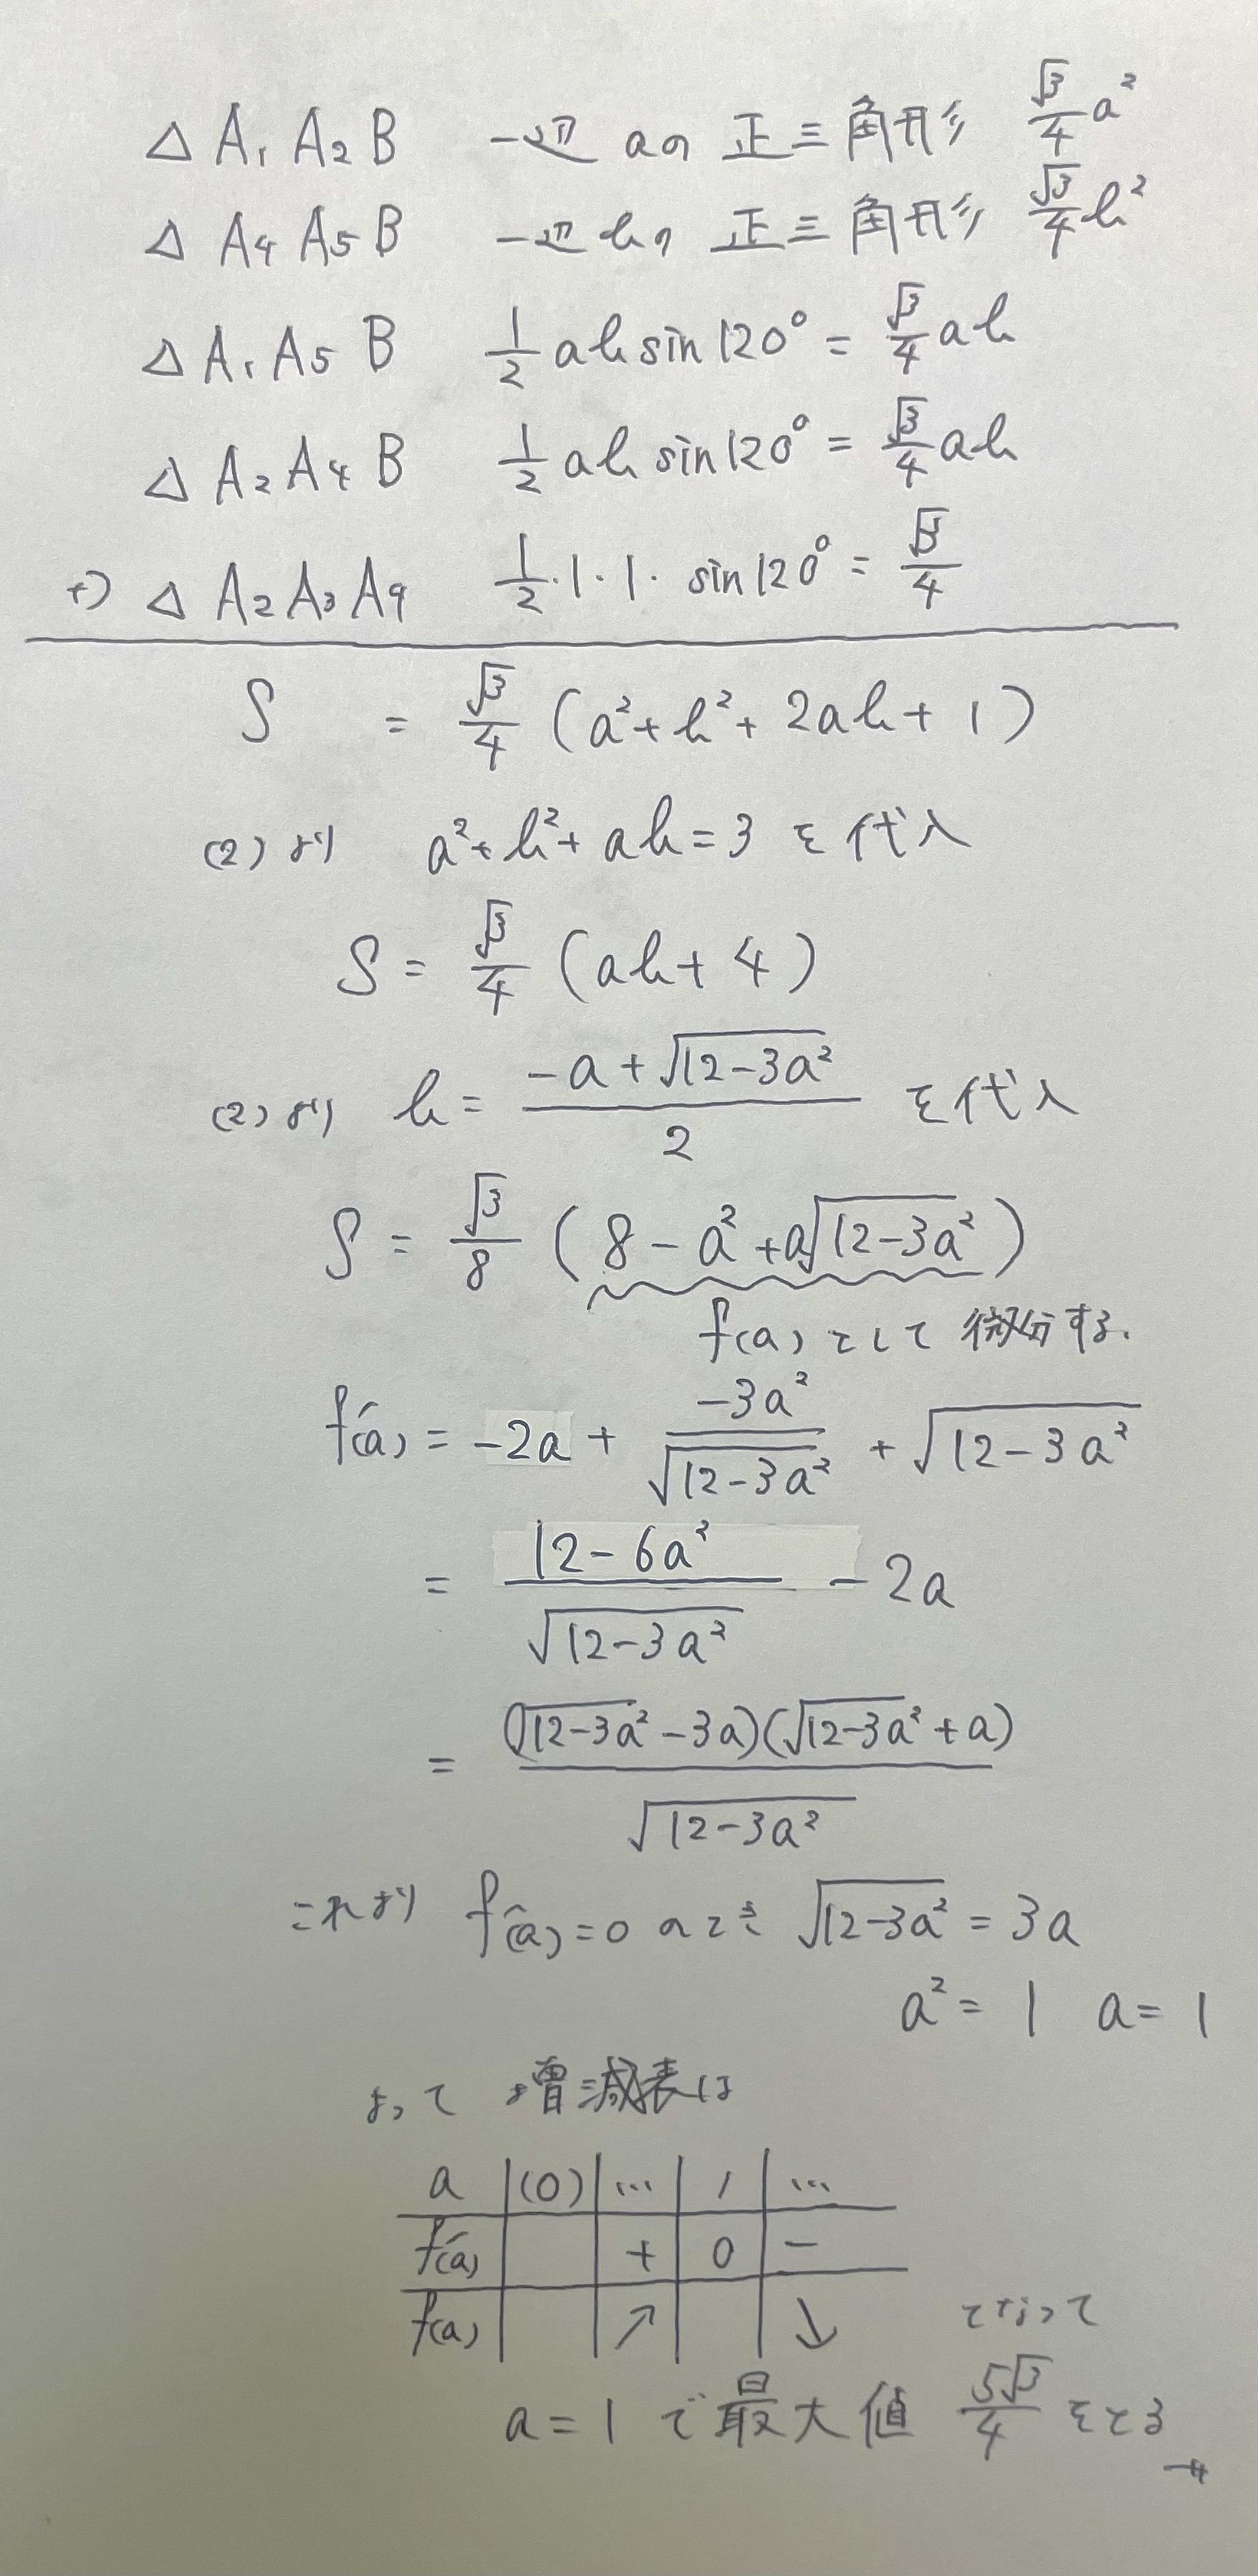 △A₁A₂B 一辺aの正三角形 √3/4 a²
△A₄A₅B 一辺bの正三角形 √3/4 b²
△A₁A₅B 1/2 ab sin120° = √3/4 ab
△A₂A₄B 1/2 ab sin120° = √3/4 ab
+) △A₂A₃A₄ 1/2・1・1・sin120° = √3/4
S = √3/4 (a²+b²+2ab+1)
(2)より a²+b²+ab=3 を代入
S = √3/4 (ab+4)
(2)より b = (-a+√(12-3a²))/2 を代入
S = √3/8 (8-a²+a√(12-3a²))
f(a)として微分する.
f'(a) = -2a + (-3a²)/√(12-3a²) + √(12-3a²)
= (12-6a²)/√(12-3a²) - 2a
= (√(12-3a²)-3a)(√(12-3a²)+a)/√(12-3a²)
これより f'(a)=0 のとき √(12-3a²) = 3a
a² = 1 a = 1
よって増減表は
a (0) … 1 …
f'(a) + 0 -
f(a) ↗ ↘ となって
a=1で最大値 5√3/4 をとる